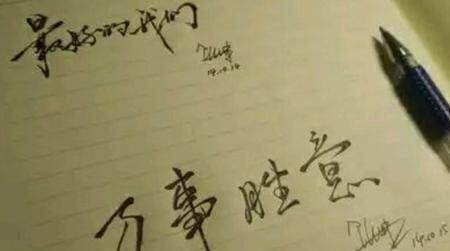 最好的我们
14.10.15
万事胜意
14.10.15